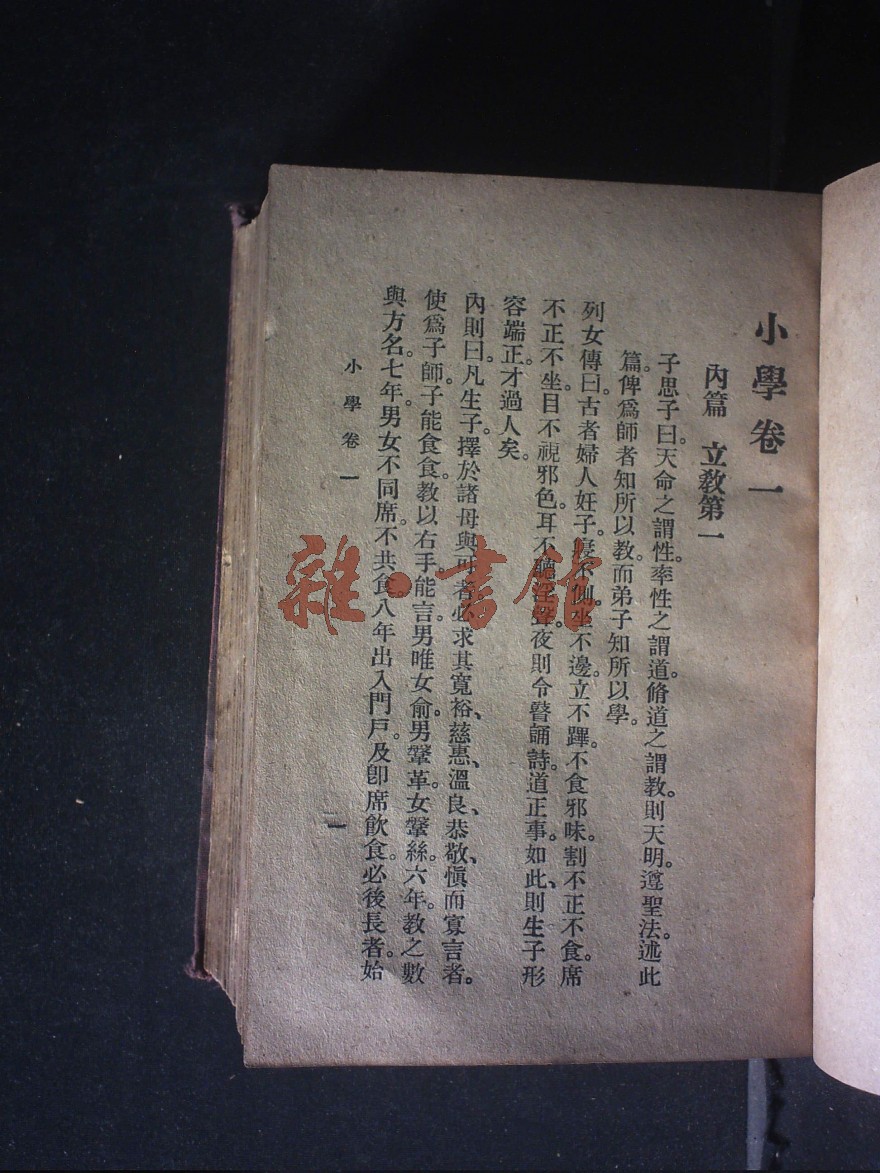 小學卷一
內篇 立敎第一
子思子曰。天命之謂性。率性之謂道。脩道之謂敎。則天明。遵聖法。述此
篇。俾爲師者知所以敎。而弟子知所以學。
列女傳曰。古者婦人妊子。寢不側。坐不邊。立不蹕。不食邪味。割不正不食。席
不正不坐。目不視邪色。耳不聽淫聲。夜則令瞽誦詩。道正事。如此、則生子形
容端正。才過人矣。
內則曰。凡生子。擇於諸母與可者。必求其寬裕、慈惠、溫良、恭敬、愼而寡言者。
使爲子師。子能食食。敎以右手。能言。男唯女俞。男鞶革。女鞶絲。六年。敎之數
與方名。七年。男女不同席。不共食。八年。出入門戶。及卽席飲食。必後長者。始
小學卷一
一
雜·書館